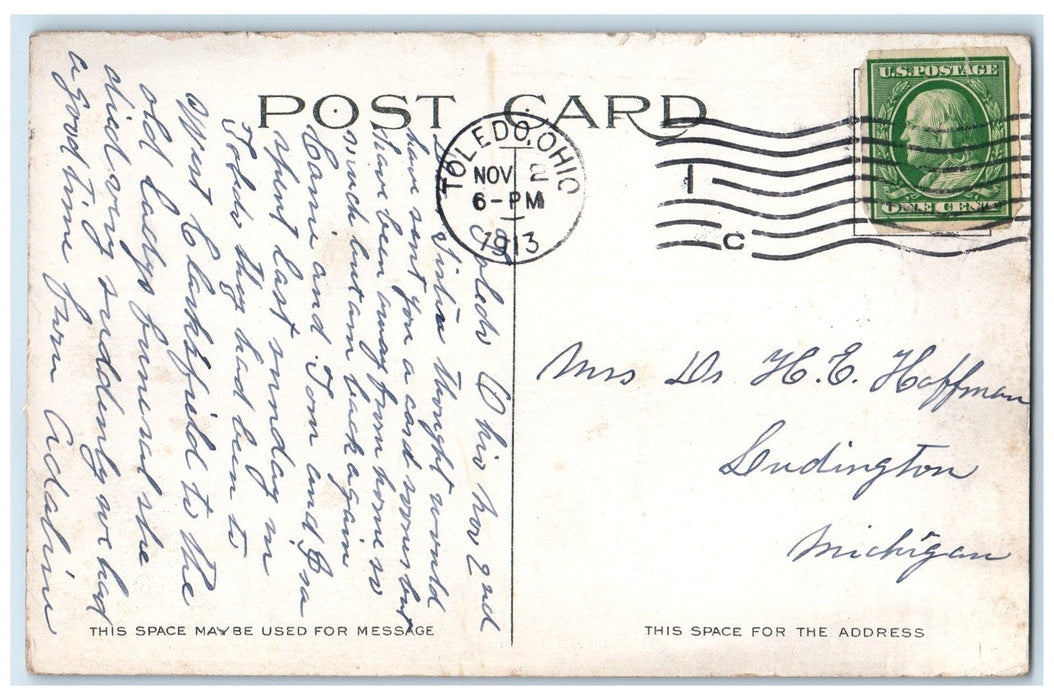 POST CARD
TOLEDO, OHIO
NOV 2
6-PM
1913
1
C
U.S. POSTAGE
ONE CENT
Toledo Ohio Nov 2nd
Dear Sister thought would
have sent you a card sooner but
have been away from home so
much but am back again
Carrie and Tom and I
spent last Sunday in
Toledo they had been to
Clarksfield to the
old ladys funeral she
died very suddenly we had
a good time from Adaline
Mrs Dr H. E. Hoffman
Ludington
Michigan
THIS SPACE MAY BE USED FOR MESSAGE
THIS SPACE FOR THE ADDRESS